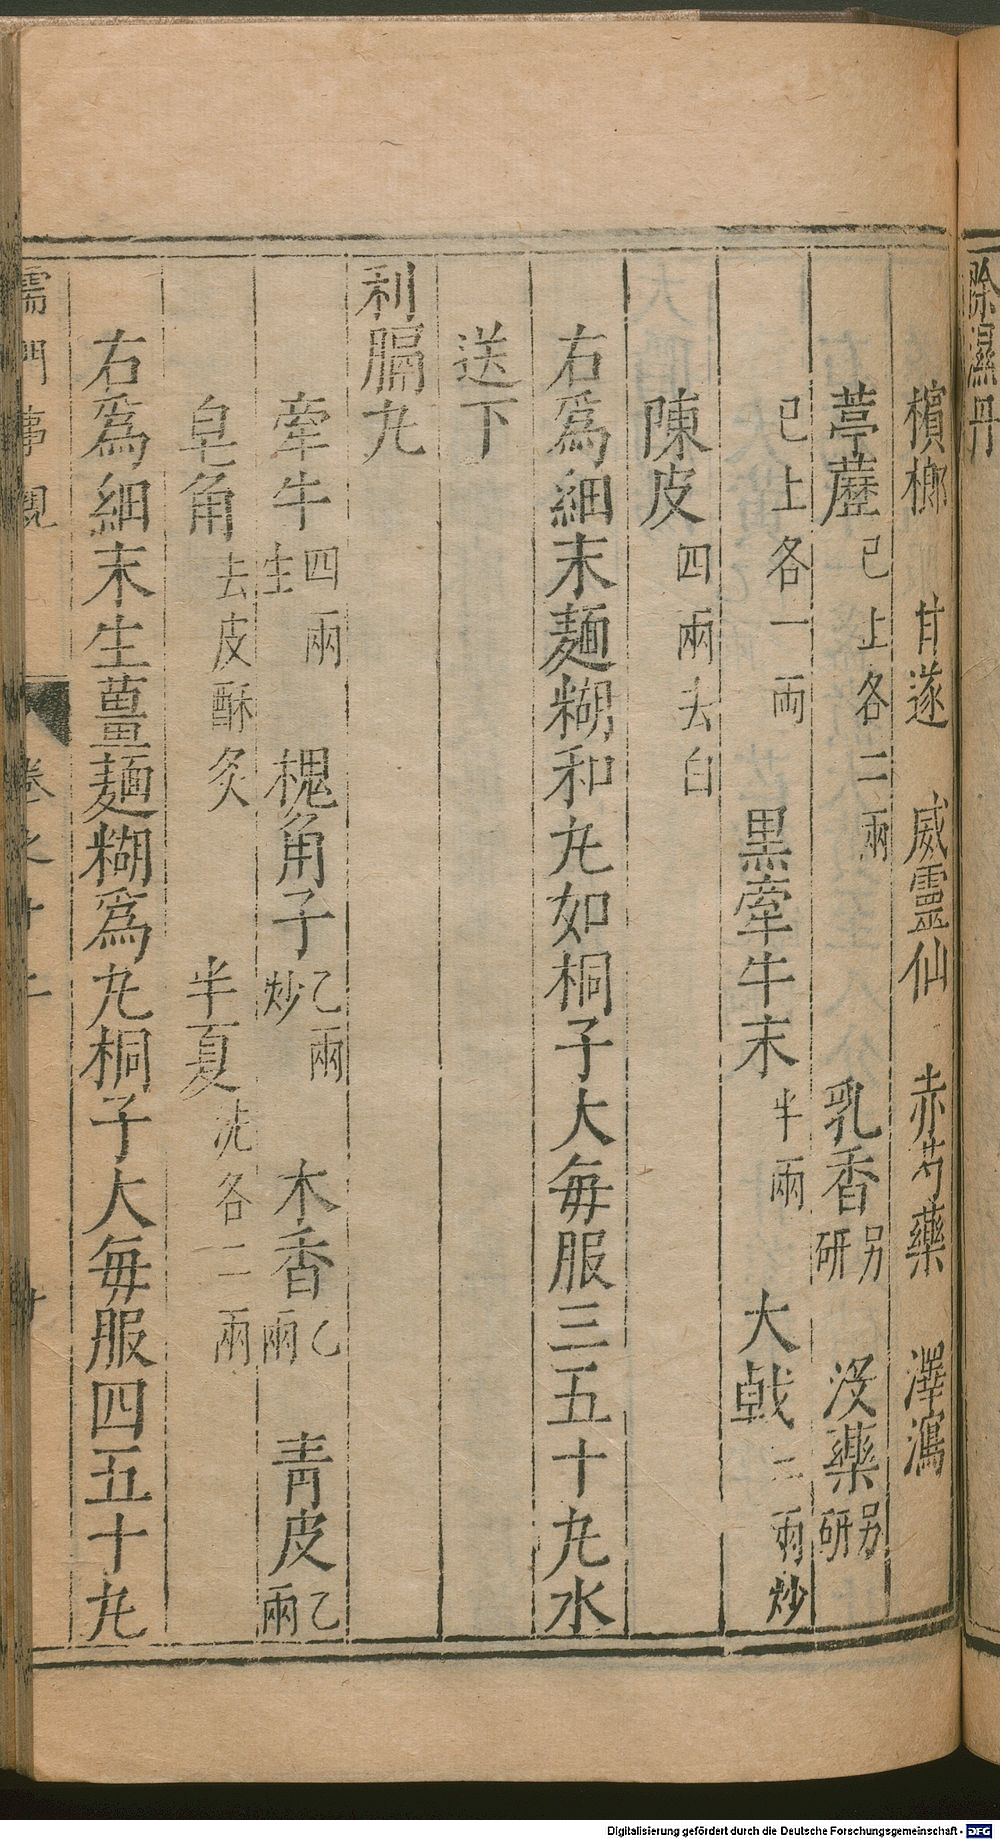 除濕丹
檳榔 甘遂 威靈仙 赤芍藥 澤瀉
葶藶 已上各二兩 乳香 另研 沒藥 另研
已上各一両 黒牽牛末 半兩 大戟 二兩炒
陳皮 四兩去白
右爲細末麺糊和丸如桐子大每服三五十丸水
送下
利膈丸
牽牛 四兩生 槐角子 乙兩炒 木香 乙兩 青皮 乙兩
皁角 去皮酥炙 半夏 洗各二兩
右爲細末生薑麺糊爲丸桐子大每服四五十丸
儒門事親 卷之十二
Digitalisierung gefördert durch die Deutsche Forschungsgemeinschaft - DFG